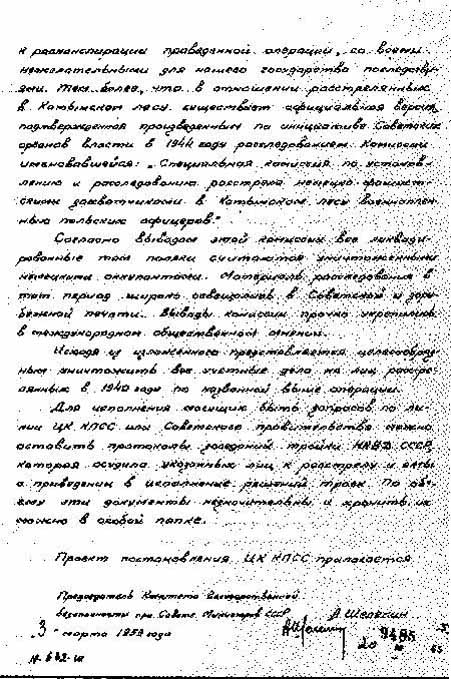 к расконспирации проведенной операции, со всеми
нежелательными для нашего государства последстви-
ями. Тем более, что в отношении расстрелянных
в Катынском лесу существует официальная версия,
подтвержденная произведенным по инициативе Советских
органов власти в 1944 году расследованием Комиссии
именовавшейся: „Специальная комиссия по установ-
лению и расследованию расстрела немецко-фашист-
скими захватчиками в Катынском лесу военноплен-
ных польских офицеров."
Согласно выводам этой комиссии все ликвиди-
рованные там поляки считаются уничтоженными
немецкими оккупантами. Материалы расследования в
тот период широко освещались в Советской и зару-
бежной печати. Выводы комиссии прочно укрепились
в международном общественном мнении.
Исходя из изложенного представляется целесообраз-
ным уничтожить все учетные дела на лиц, расстре-
лянных в 1940 году по названной выше операции.
Для исполнения могущих быть запросов по ли-
нии ЦК КПСС или Советского правительства можно
оставить протоколы заседаний тройки НКВД СССР,
которая осудила указанных лиц к расстрелу и акты
о приведении в исполнение решений троек. По объ-
ему эти документы незначительны и хранить их
можно в особой папке.
Проект постановления ЦК КПСС прилагается.
Председатель Комитета Государственной
безопасности при Совете Министров СССР
А Шелепин
„3" марта 1959 года
9485